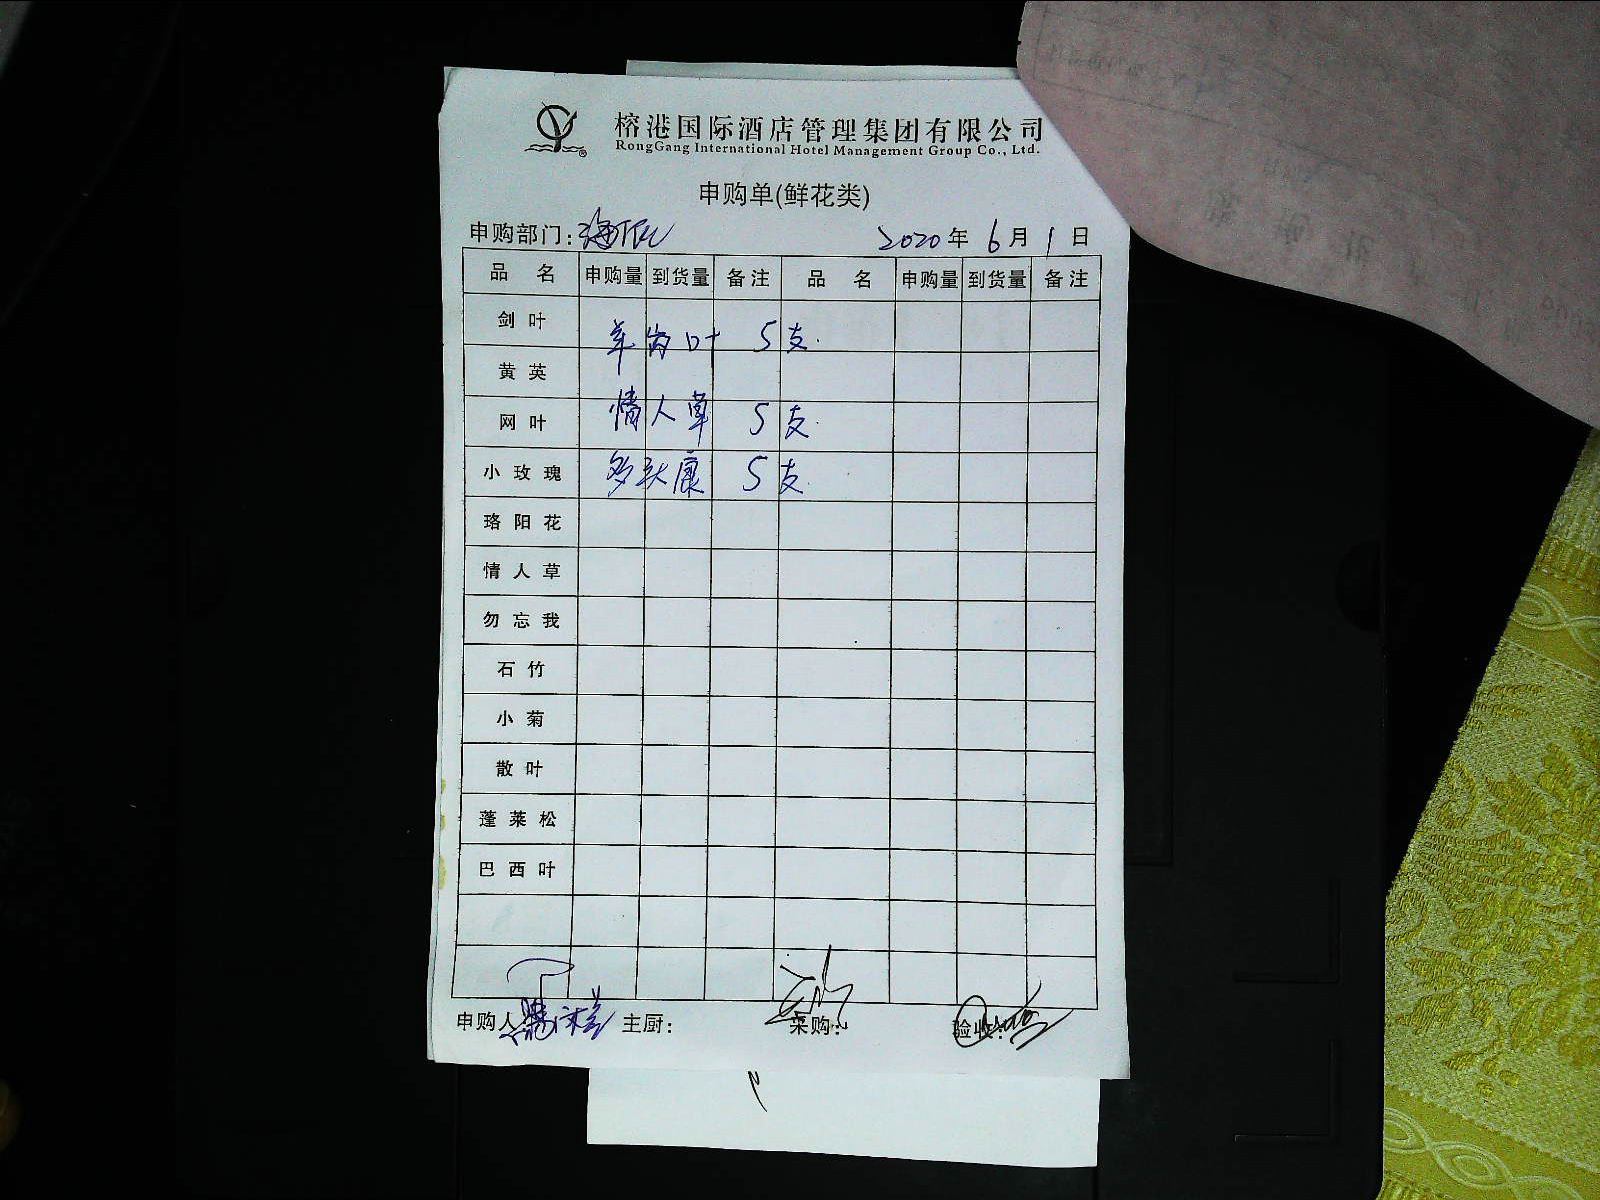 榕港国际酒店管理集团有限公司
RongGang International Hotel Management Group Co., Ltd.
申购单(鲜花类)
申购部门: 2020年 6月 1日
品 名 申购量 到货量 备注 品 名 申购量 到货量 备注
剑叶
羊齿叶 5支.
黄英
网叶 情人草 5支.
小玫瑰 多头康 5支.
珞阳花
情人草
勿忘我
石竹
小菊
散叶
蓬莱松
巴西叶
申购人 主厨: 采购: 验收: